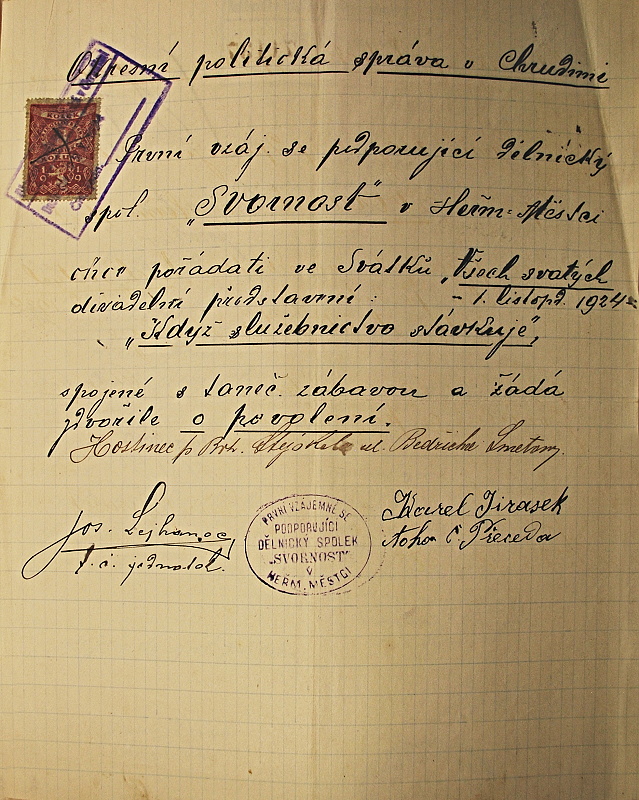 Okresní politická správa v Chrudimi
KOLEK
První vzáj. se podporující dělnický
spol. „Svornost" v Heřm-Městci
chce pořádati ve Svátku „Všech svatých
divadelní představení: - 1. listopd. 1924
„Když služebnictvo stávkuje",
spojené s taneč. zábavou a žádá
zdvořile o povolení.
Hostinec p ul. Bedřicha Smetany.
Jos.
t. č. jednatel.
PRVNÍ VZÁJEMNĚ SE
PODPORUJÍCÍ
DĚLNICKÝ SPOLEK
„SVORNOST"
V
HEŘM. MĚSTCI
Karel Jirasek
toho č Předseda